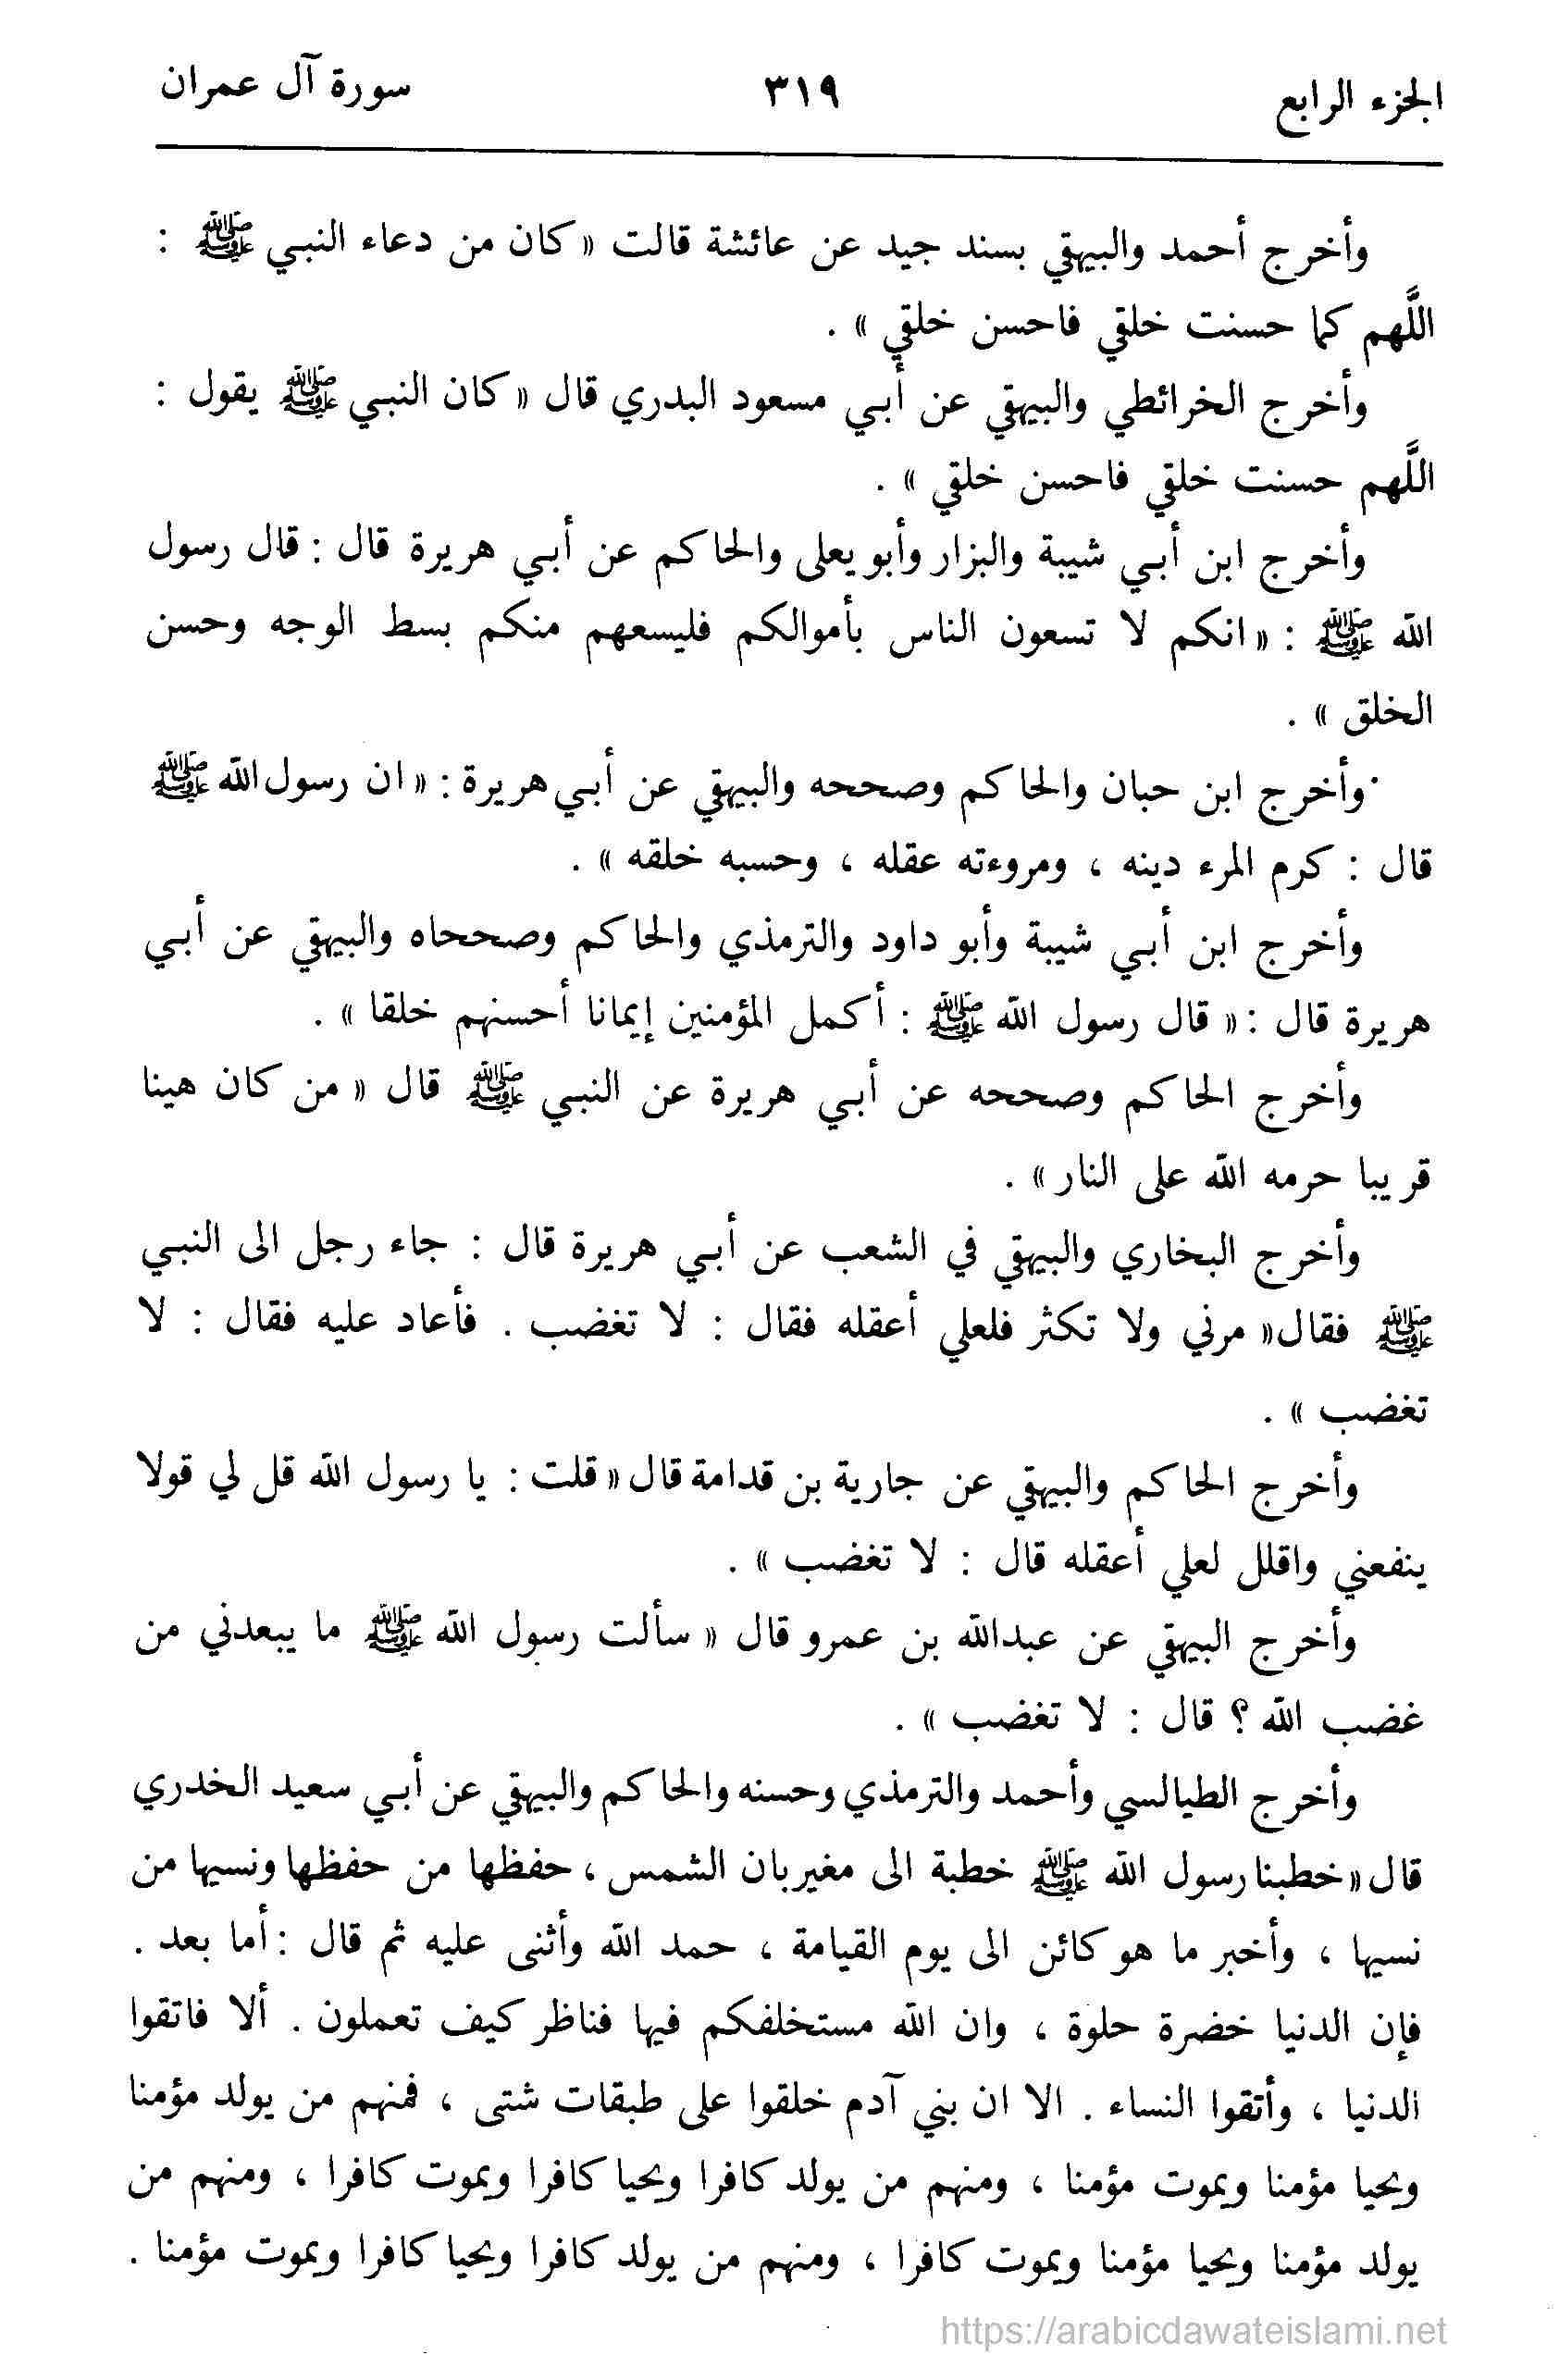 الجزء الرابع ٣١٩ سورة آل عمران
وأخرج أحمد والبيهقي بسند جيد عن عائشة قالت « كان من دعاء النبي ﷺ :
اللَّهم كما حسنت خلقي فاحسن خلقي » .
وأخرج الخرائطي والبيهقي عن أبي مسعود البدري قال « كان النبي ﷺ يقول :
اللَّهم حسنت خلقي فاحسن خلقي » .
وأخرج ابن أبي شيبة والبزار وأبو يعلى والحاكم عن أبي هريرة قال : قال رسول
الله ﷺ : « انكم لا تسعون الناس بأموالكم فليسعهم منكم بسط الوجه وحسن
الخلق » .
وأخرج ابن حبان والحاكم وصححه والبيهقي عن أبي هريرة : « ان رسول الله ﷺ
قال : كرم المرء دينه ، ومروءته عقله ، وحسبه خلقه » .
وأخرج ابن أبي شيبة وأبو داود والترمذي والحاكم وصححاه والبيهقي عن أبي
هريرة قال : « قال رسول الله ﷺ : أكمل المؤمنين إيمانا أحسنهم خلقا » .
وأخرج الحاكم وصححه عن أبي هريرة عن النبي ﷺ قال « من كان هينا
قريبا حرمه الله على النار » .
وأخرج البخاري والبيهقي في الشعب عن أبي هريرة قال : جاء رجل الى النبي
ﷺ فقال « مرني ولا تكثر فلعلي أعقله فقال : لا تغضب . فأعاد عليه فقال : لا
تغضب » .
وأخرج الحاكم والبيهقي عن جارية بن قدامة قال « قلت : يا رسول الله قل لي قولا
ينفعني واقلل لعلي أعقله قال : لا تغضب » .
وأخرج البيهقي عن عبدالله بن عمرو قال « سألت رسول الله ﷺ ما يبعدني من
غضب الله ؟ قال : لا تغضب » .
وأخرج الطيالسي وأحمد والترمذي وحسنه والحاكم والبيهقي عن أبي سعيد الخدري
قال « خطبنا رسول الله ﷺ خطبة الى مغيربان الشمس ، حفظها من حفظها ونسيها من
نسيها ، وأخبر ما هو كائن الى يوم القيامة ، حمد الله وأثنى عليه ثم قال : أما بعد .
فإن الدنيا خضرة حلوة ، وان الله مستخلفكم فيها فناظر كيف تعملون . ألا فاتقوا
الدنيا ، وأتقوا النساء . الا ان بني آدم خلقوا على طبقات شتى ، فمنهم من يولد مؤمنا
ويحيا مؤمنا ويموت مؤمنا ، ومنهم من يولد كافرا ويحيا كافرا ويموت كافرا ، ومنهم من
يولد مؤمنا ويحيا مؤمنا ويموت كافرا ، ومنهم من يولد كافرا ويحيا كافرا ويموت مؤمنا .
https://arabicdawateislami.net